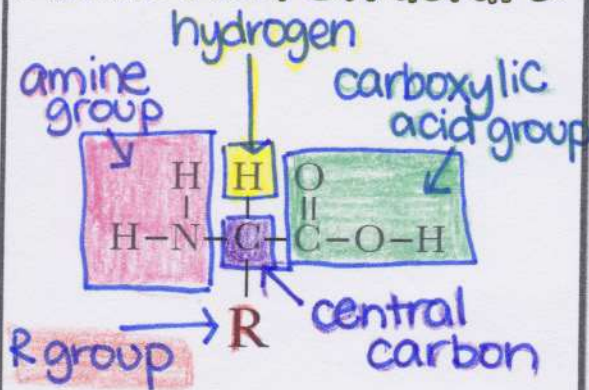 hydrogen
amine
group
carboxylic
acid group
H H O
H–N–C–C–O–H
R
R group
central
carbon